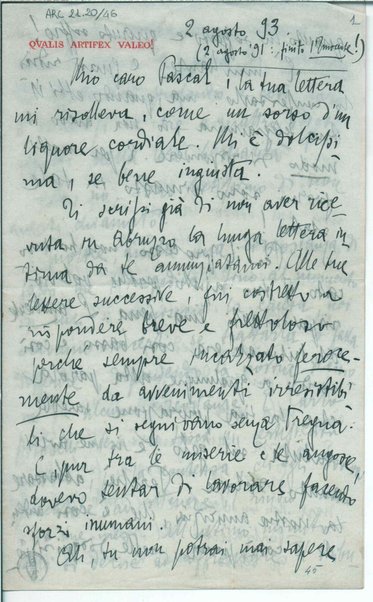 ARC 21.20/46
1
QVALIS ARTIFEX VALEO!
2 agosto 93
(2 agosto 91: finito l'"Innocente"!)
Mio caro Pascal, la tua lettera
mi risolleva, come un sorso d'un
liquore cordiale. Mi è dolcissi
ma, se bene ingiusta.
Ti scrissi già di non aver rice-
vuta in Abruzzo la lunga lettera in
tima da te annunziatami. Alle tue
lettere successive, fui costretto a
rispondere breve e frettoloso
perché sempre incalzato feroce-
mente da avvenimenti irresistibi
li che si seguivano senza tregua.
E pur tra le miserie e le angosce,
dovevo tentar di lavorare facendo
sforzi inumani.
Ah, tu non potrai mai sapere
45